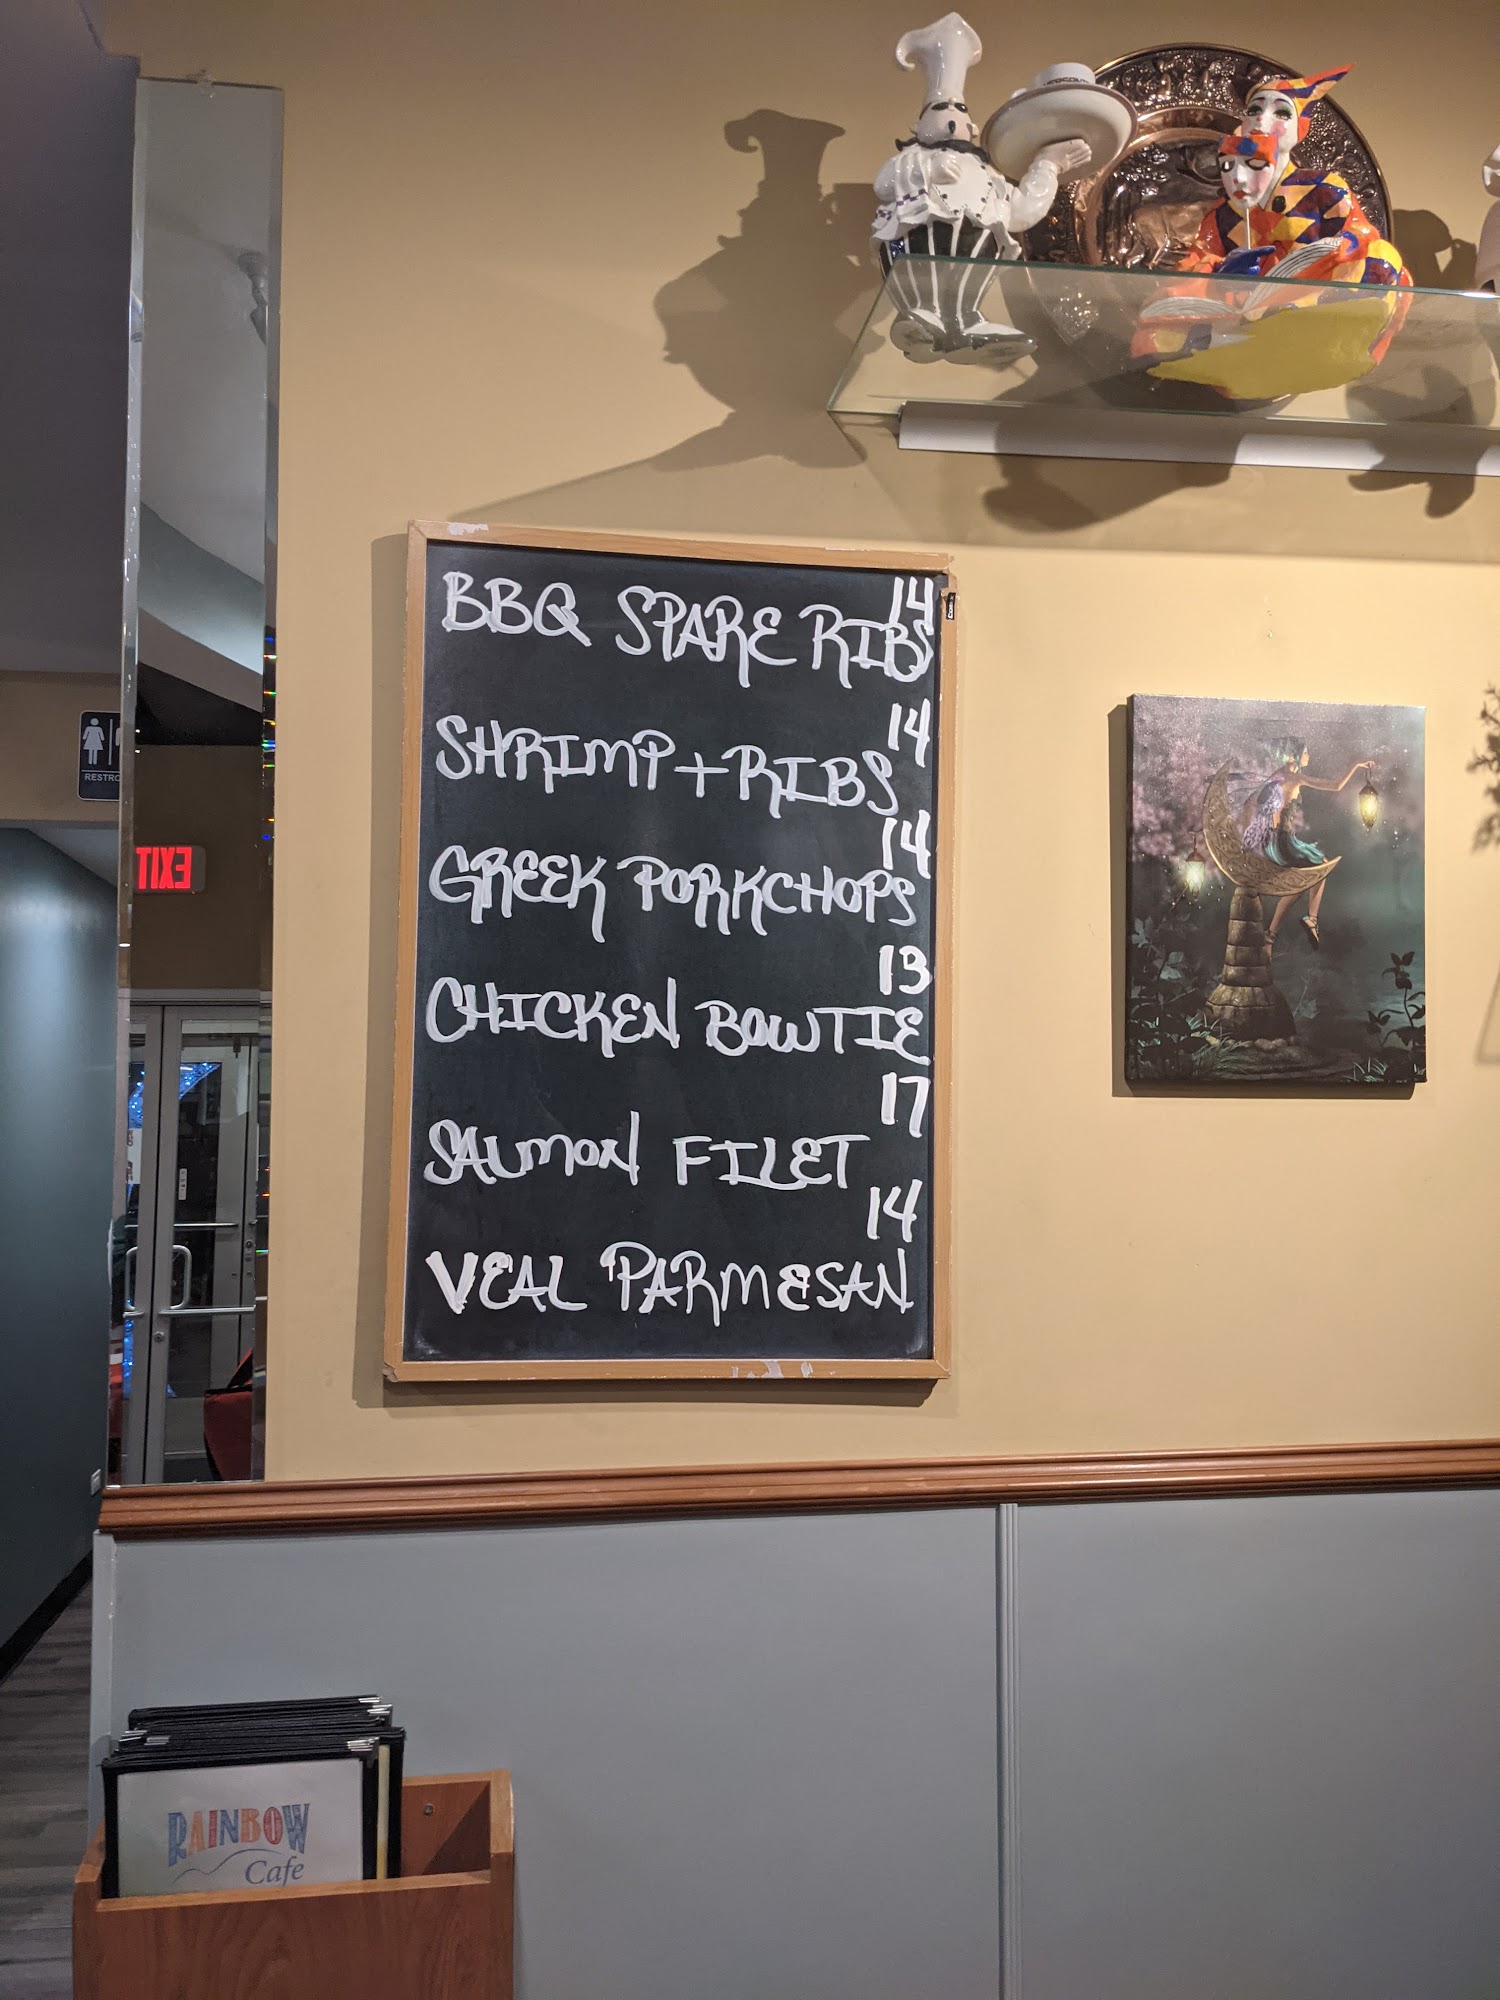 14
BBQ SPARE RIBS
14
SHRIMP + RIBS
14
GREEK PORKCHOPS
13
CHICKEN BOWTIE
17
SALMON FILET
14
VEAL PARMESAN
EXIT
RAINBOW
Cafe